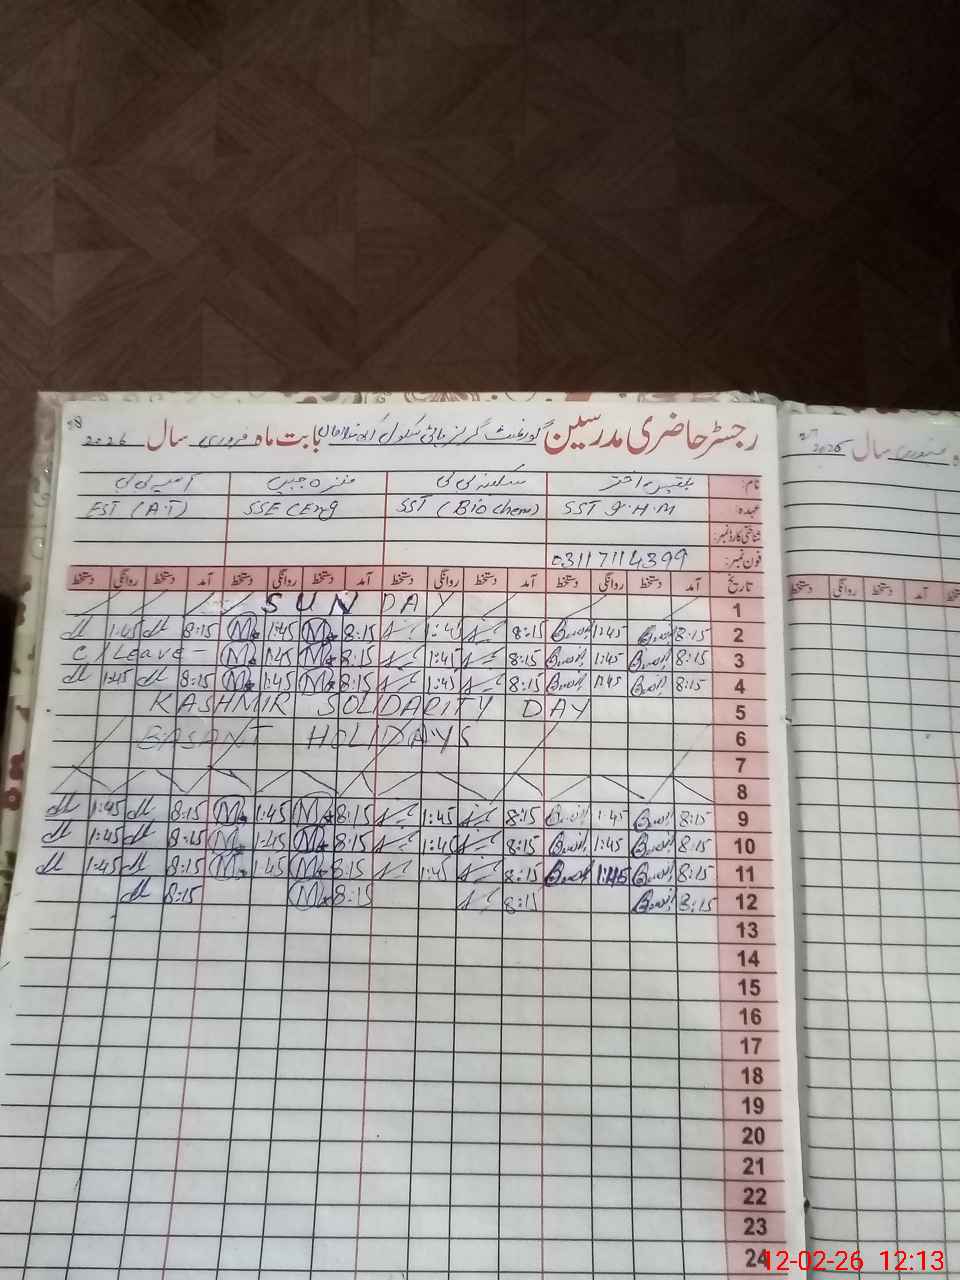 رجسٹر حاضری مدرسین گورنمنٹ گرلز ہائی سکول بابت ماہ فروری سال 2026
نام: بلقیس اختر سکینہ بی بی منزہ جبیں آسیہ بی بی
عہدہ: SST I.H.M SST (Bio chem) SSE (Eng EST (A.T)
شناختی کارڈ نمبر:
فون نمبر: 03117114399
تاریخ آمد دستخط روانگی دستخط آمد دستخط روانگی دستخط آمد دستخط روانگی دستخط آمد دستخط روانگی دستخط
1 SUN DAY
2 8:15 1:45 8:15 1:45 8:15 1:45 8:15 1:45
3 8:15 1:45 8:15 1:45 8:15 1:45 C/Leave
4 8:15 1:45 8:15 1:45 8:15 1:45 8:15 1:45
5 KASHMIR SOLIDARITY DAY
6 BASANT HOLIDAYS
7
8
9 8:15 1:45 8:15 1:45 8:15 1:45 8:15 1:45
10 8:15 1:45 8:15 1:45 8:15 1:45 8:15 1:45
11 8:15 1:45 8:15 1:45 8:15 1:45 8:15 1:45
12 8:15 8:15 8:15 8:15
13
14
15
16
17
18
19
20
21
22
23
24
سال 2026
دستخط روانگی دستخط آمد
12-02-26 12:13